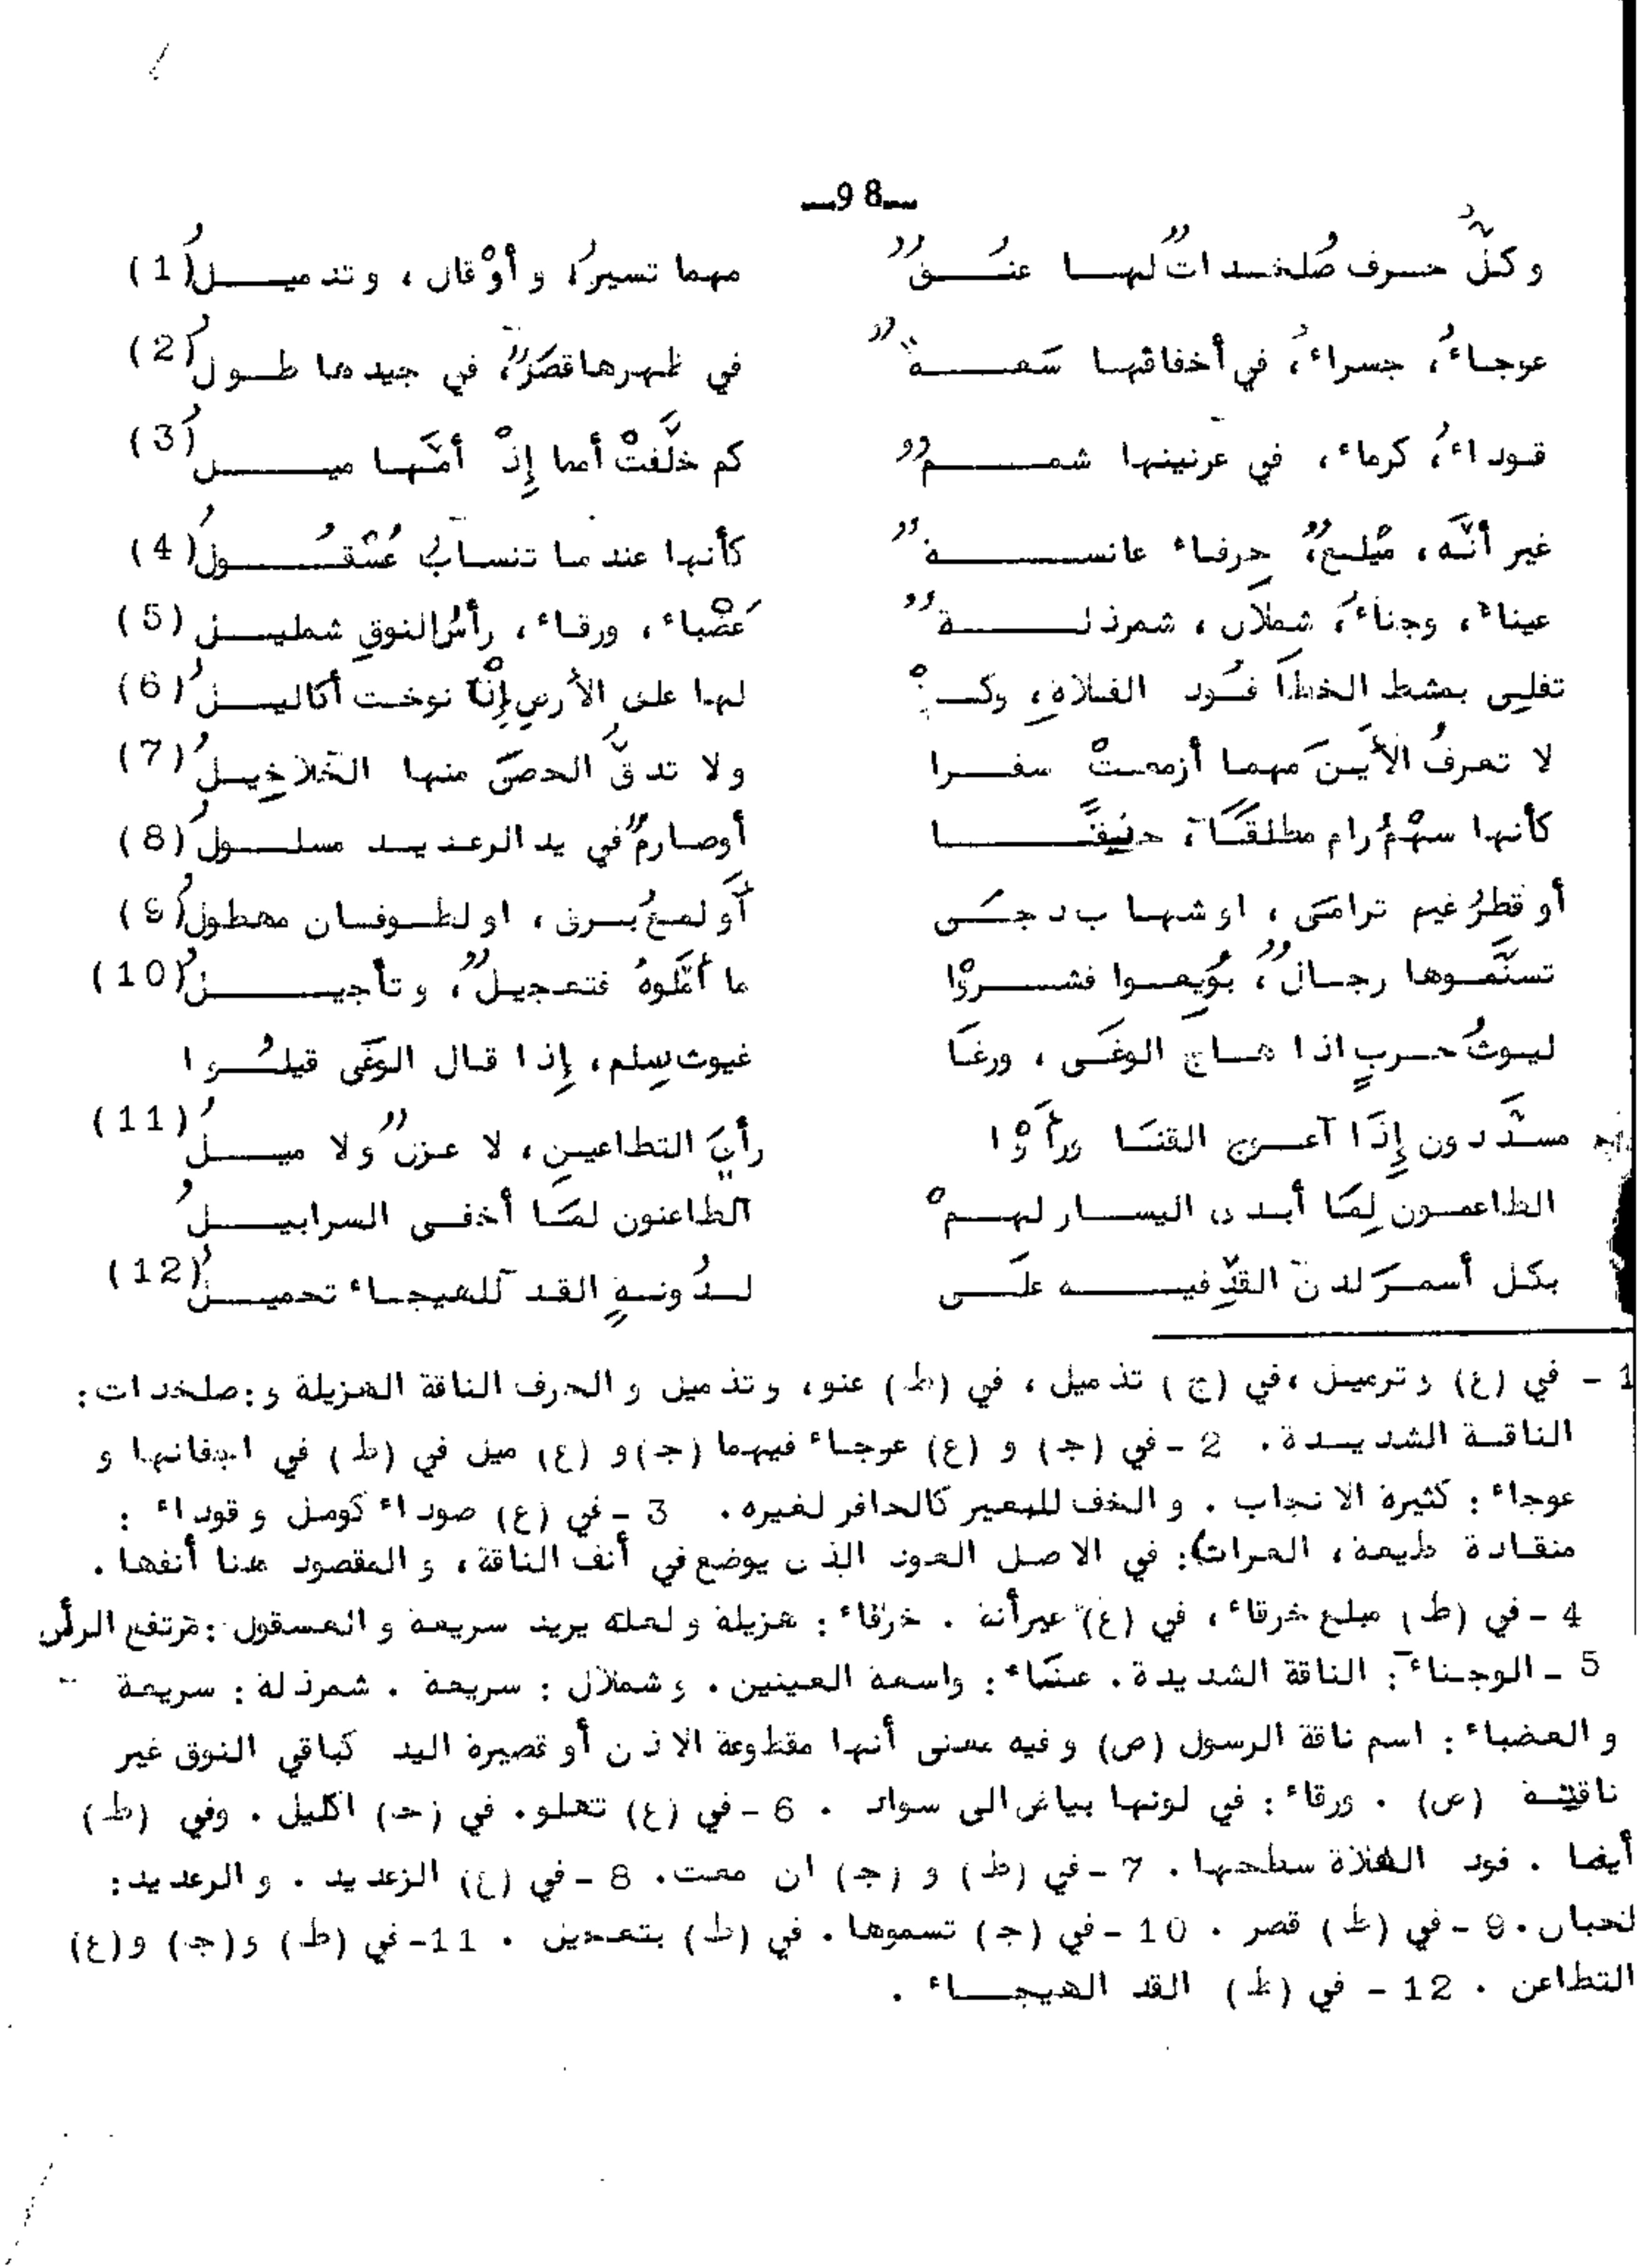 ـ98ـ
وكلّ حرف صُلخدات لها عنُق مهما تسيرُ، وأوْقال، وتدميلُ (1)
عوجاءُ، جسراءُ، في أخفافها سَعة في ظهرها قصَر، في جيدها طولُ (2)
قوداءُ، كرماء، في عرنينها شمم كم خلَّفتْ أمما إِذْ أمَّها ميل (3)
غير أنَّه، مَيْلع، حرفاء عانسة كأنها عندما تنساب عُسْقُولُ (4)
عيناء، وجناءُ، شملال، شمرذلة عَضْباء، ورقاء، رأسُ النوقِ شمليل (5)
تفلِي بمشط الخطا فَود الفلاةِ، وكم لها على الأرضِ إِنْ نوخت أكاليلُ (6)
لا تعرفُ الأيَنَ مهما أزمعتْ سفرا ولا تدقُّ الحصَى منها الخَلاخِيلُ (7)
كأنها سهْمُ رام مطلقًا، حنيفًا أوصارمٌ في يد الرعديد مسلولُ (8)
أو قطرُ غيم ترامَى، اوشهاب دجَى أو لمعُ برق، او لطوفان مهطولُ (9)
تسنَّموها رجال، بُويِعوا فشروْا ما أمَّلوهُ فتعجيل، وتأجيلُ (10)
ليوثُ حربٍ اذا هاج الوغَى، ورغَا غيوث سِلم، إِذا قال الوَغَى قيلُوا
مسدَّدون إِذَا آعوج القنَا ورأَوْا رأيَ التطاعينِ، لا عزل ولا ميلُ (11)
الطاعمون لِمَا أبدى اليسار لهمْ الطاعنون لمَا أخفى السرابيلُ
بكل أسمرَ لدن القدِّ فيه علَى لدُونةِ القد للهيجاء تحميلُ (12)
1 - في (ع) وترميل، في (ج) تذميل، في (ط) عنو، وتذميل والحرف الناقة الهزيلة و: صلخدات:
الناقة الشديدة. 2 - في (جـ) و (ع) عرجاء فيهما (جـ) و (ع) ميل في (ط) في اجفانها و
عوجاء: كثيرة الانجاب. والخف للبعير كالحافر لغيره. 3 - في (ع) صوداء كومل وقوداء:
منقادة طيعة، العران: في الاصل العود الذي يوضع في أنف الناقة، والمقصود هنا أنفها.
4 - في (ط) ميلع خرقاء، في (ع) عيرأنة. خرقاء: هزيلة ولعله يريد سريعة والعسقول: مرتفع الرأس
5 - الوجناء: الناقة الشديدة. عيناء: واسعة العينين. وشملال: سريعة. شمرذلة: سريعة -
والعضباء: اسم ناقة الرسول (ص) وفيه معنى أنها مقطوعة الاذن أو قصيرة اليد كباقي النوق غير
ناقته (ص). ورقاء: في لونها بياض الى سواد. 6 - في (ع) تعلو. في (جـ) اكليل. وفي (ط)
أيضا. فود الفلاة سطحها. 7 - في (ط) و (جـ) ان معت. 8 - في (ع) الزعديد. والرعديد:
لجبان. 9 - في (ط) قصر. 10 - في (جـ) تسموها. في (ط) بتعجيل. 11 - في (ط) و(جـ) و(ع)
التطاعن. 12 - في (ط) القد الهيجاء.